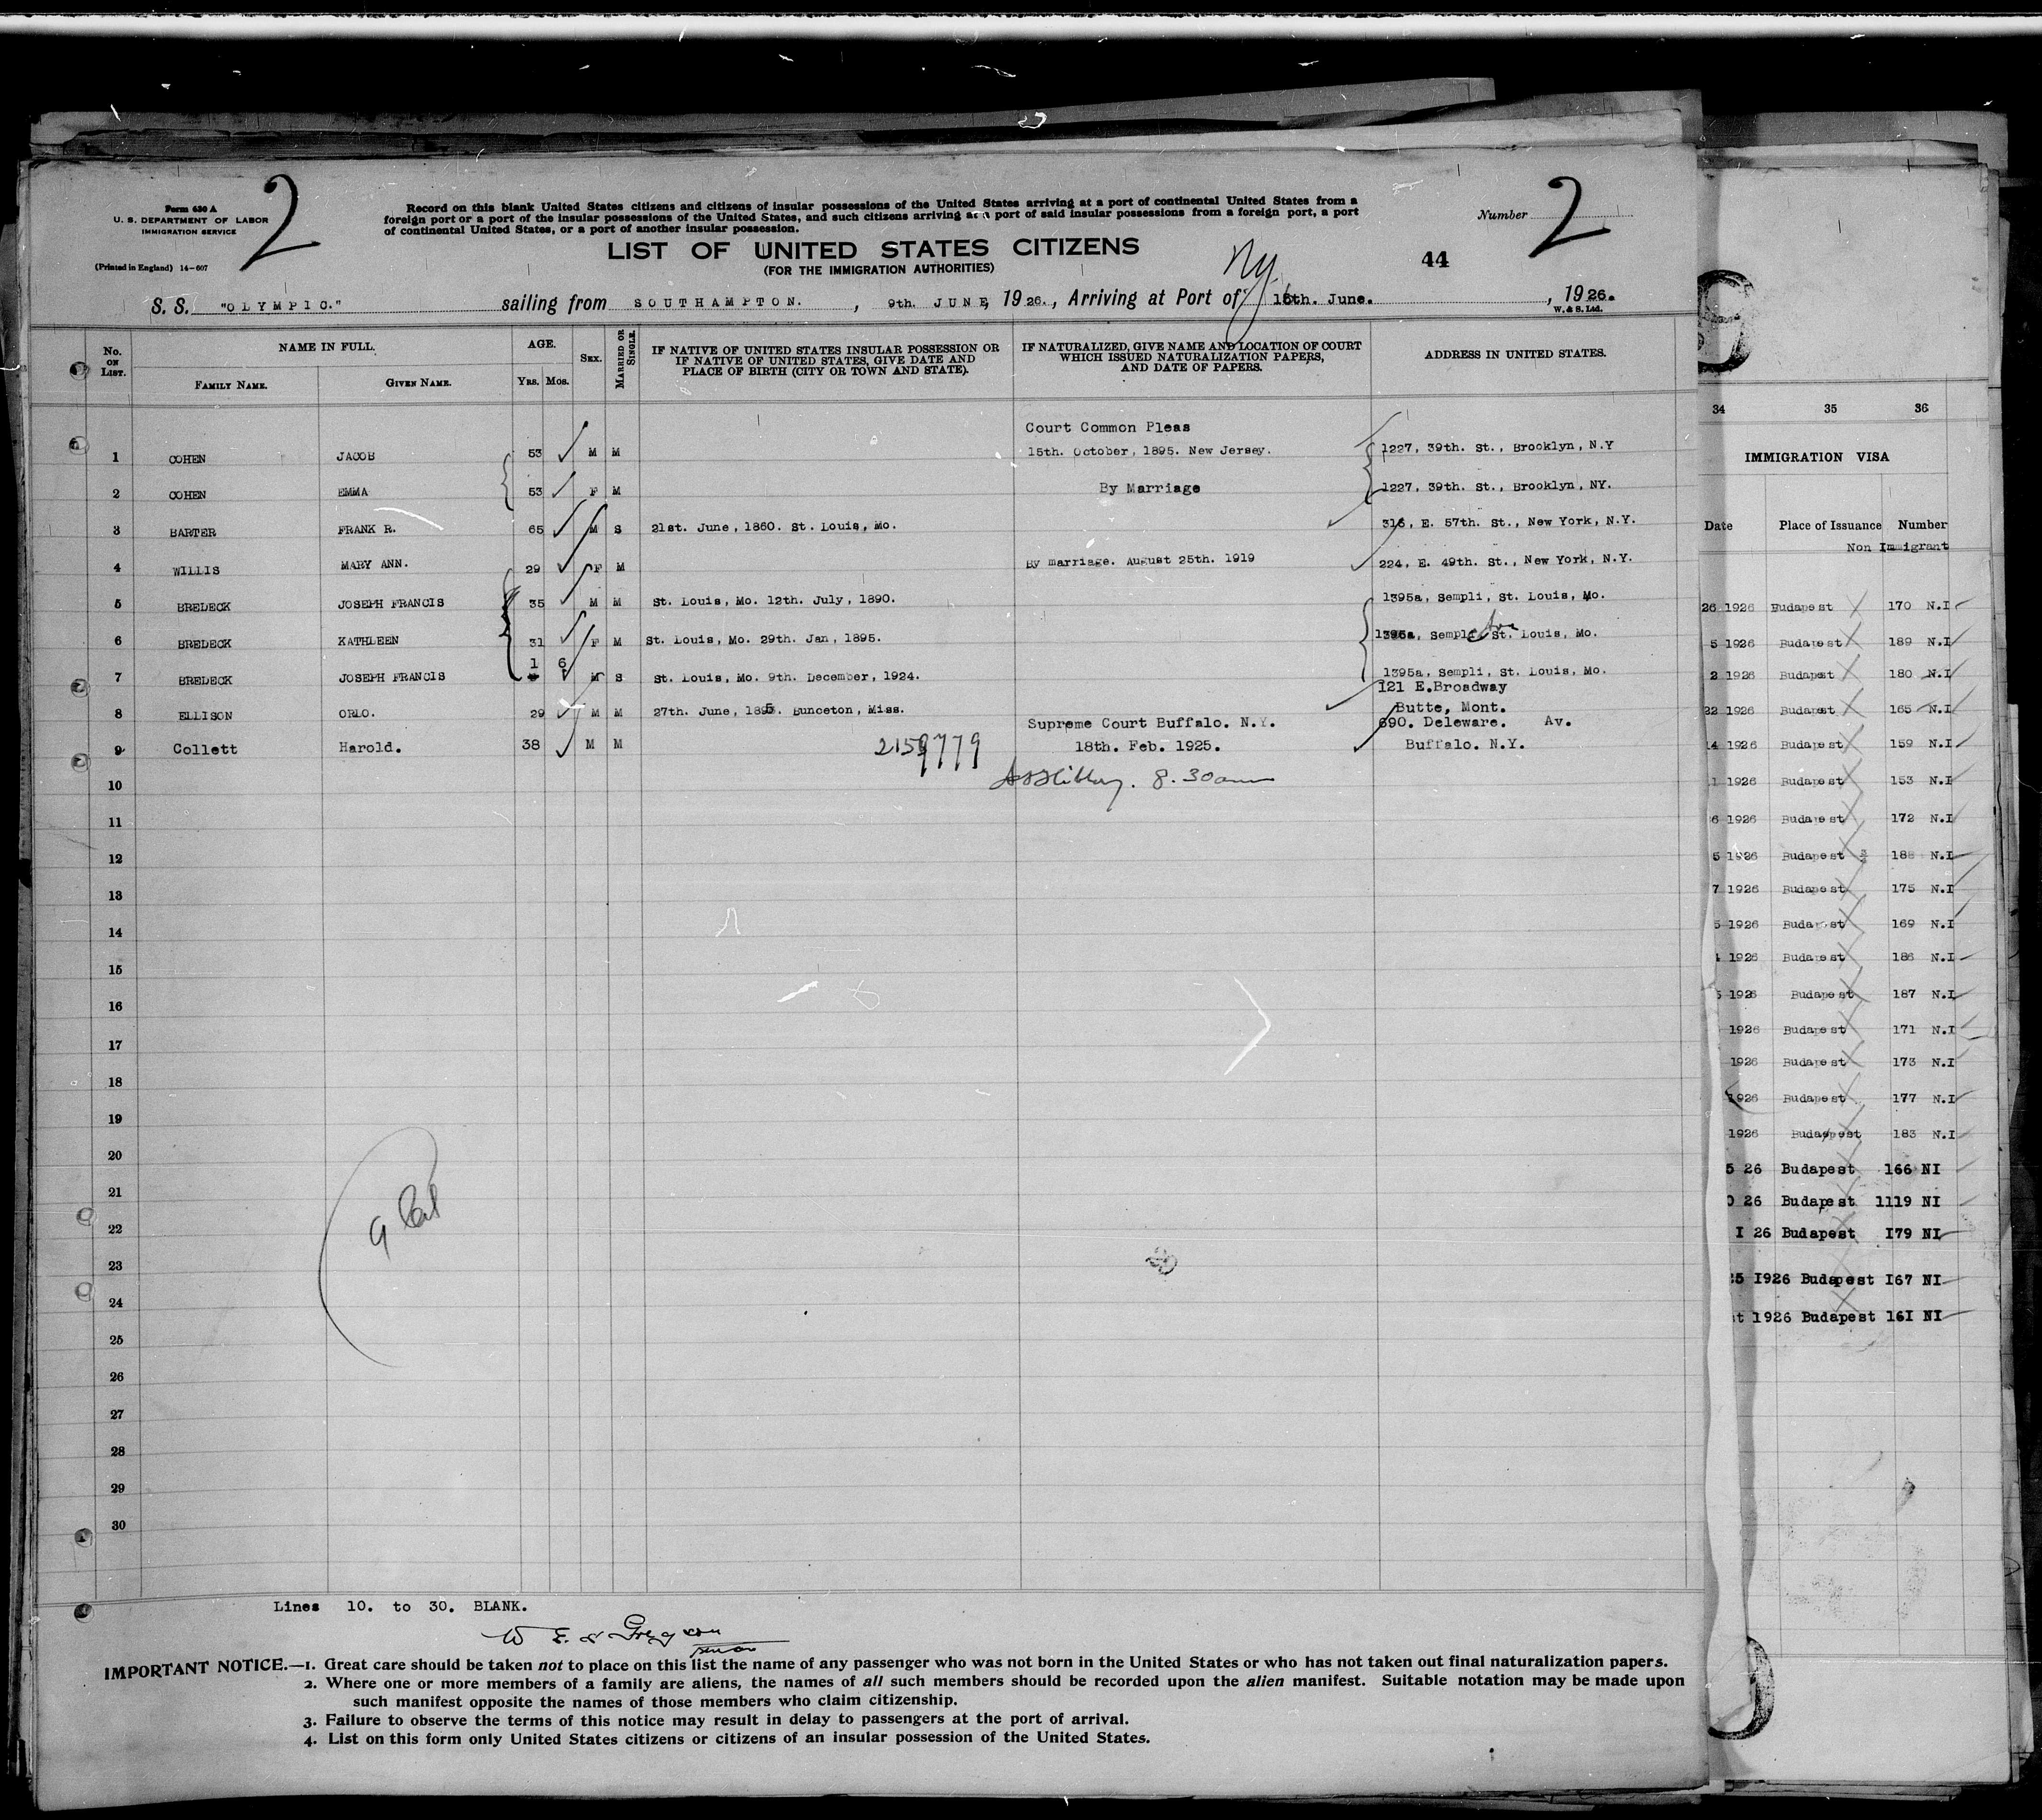 2
Form 630 A
U. S. DEPARTMENT OF LABOR
IMMIGRATION SERVICE
(Printed in England) 14-607
Record on this blank United States citizens and citizens of insular possessions of the United States arriving at a port of continental United States from a
foreign port or a port of the insular possessions of the United States, and such citizens arriving at a port of said insular possessions from a foreign port, a port
of continental United States, or a port of another insular possession.
Number
2
LIST OF UNITED STATES CITIZENS
(FOR THE IMMIGRATION AUTHORITIES)
44
S. S. "OLYMPIC." sailing from SOUTHAMPTON. , 9th. JUNE, 1926., Arriving at Port of NY 16th. June. , 1926.
W. & S. Ltd.
No. ON LIST. NAME IN FULL. AGE. SEX. MARRIED OR SINGLE. IF NATIVE OF UNITED STATES INSULAR POSSESSION OR IF NATIVE OF UNITED STATES, GIVE DATE AND PLACE OF BIRTH (CITY OR TOWN AND STATE). IF NATURALIZED, GIVE NAME AND LOCATION OF COURT WHICH ISSUED NATURALIZATION PAPERS, AND DATE OF PAPERS. ADDRESS IN UNITED STATES.
FAMILY NAME. GIVEN NAME. YRS. MOS.
Court Common Pleas
1 COHEN JACOB 53 M M 15th. October, 1895. New Jersey. 1227, 39th. St., Brooklyn, N.Y
2 COHEN EMMA 53 F M By Marriage 1227, 39th. St., Brooklyn, NY.
3 BARTER FRANK R. 65 M S 21st. June, 1860. St. Louis, Mo. 316, E. 57th. St., New York, N.Y.
4 WILLIS MARY ANN. 29 F M By marriage. August 25th. 1919 224, E. 49th. St., New York, N.Y.
5 BREDECK JOSEPH FRANCIS 35 M M St. Louis, Mo. 12th. July, 1890. 1395a, Sempli, St. Louis, Mo.
6 BREDECK KATHLEEN 31 F M St. Louis, Mo. 29th. Jan, 1895. 1395a, Sempli Ave St. Louis, Mo.
7 BREDECK JOSEPH FRANCIS 1 6 M S St. Louis, Mo. 9th. December, 1924. 1395a, Sempli, St. Louis, Mo.
121 E.Broadway
8 ELLISON ORLO. 29 M M 27th. June, 1895. Bunceton, Miss. Butte, Mont.
Supreme Court Buffalo. N.Y. 690. Deleware. Av.
9 Collett Harold. 38 M M 2159779 18th. Feb. 1925. Buffalo. N.Y.
10 8.30am
11
12
13
14
15
16
17
18
19
20
21
22
23
24
25
26
27
28
29
30
Lines 10. to 30. BLANK.
IMPORTANT NOTICE.—1. Great care should be taken not to place on this list the name of any passenger who was not born in the United States or who has not taken out final naturalization papers.
2. Where one or more members of a family are aliens, the names of all such members should be recorded upon the alien manifest. Suitable notation may be made upon
such manifest opposite the names of those members who claim citizenship.
3. Failure to observe the terms of this notice may result in delay to passengers at the port of arrival.
4. List on this form only United States citizens or citizens of an insular possession of the United States.
34 35 36
IMMIGRATION VISA
Date Place of Issuance Number
Non Immigrant
26 1926 Budapest 170 N.I
5 1926 Budapest 189 N.I
2 1926 Budapest 180 N.I
22 1926 Budapest 165 N.I
14 1926 Budapest 159 N.I
1 1926 Budapest 153 N.I
6 1926 Budapest 172 N.I
5 1926 Budapest 188 N.I
7 1926 Budapest 175 N.I
5 1926 Budapest 169 N.I
1926 Budapest 186 N.I
1926 Budapest 187 N.I
1926 Budapest 171 N.I
1926 Budapest 173 N.I
1926 Budapest 177 N.I
1926 Budapest 183 N.I
5 26 Budapest 166 NI
26 Budapest 1119 NI
I 26 Budapest I79 NI
5 I926 Budapest I67 NI
t 1926 Budapest 16I NI